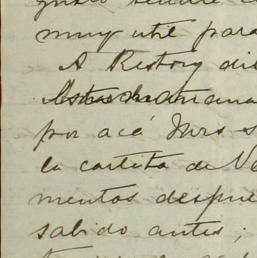 muy util para
A Restory di
mañana
por acá Mrs S
la cartita de Ne
mentos despue
sabido antes;